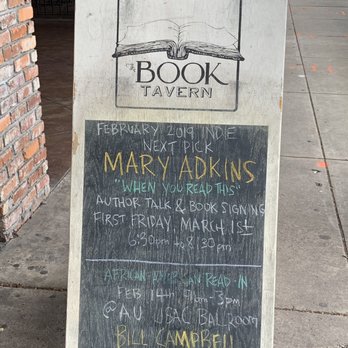 The
BOOK
TAVERN
FEBRUARY 2019 INDIE
NEXT PICK
MARY ADKINS
"WHEN YOU READ THIS"
AUTHOR TALK & BOOK SIGNING
FIRST FRIDAY, MARCH 1st
6:30pm to 8:30pm
AFRICAN-AMERICAN READ-IN
FEB 14th, 9am-3pm
@ A.U. JSAC BALLROOM
BILL CAMPBELL